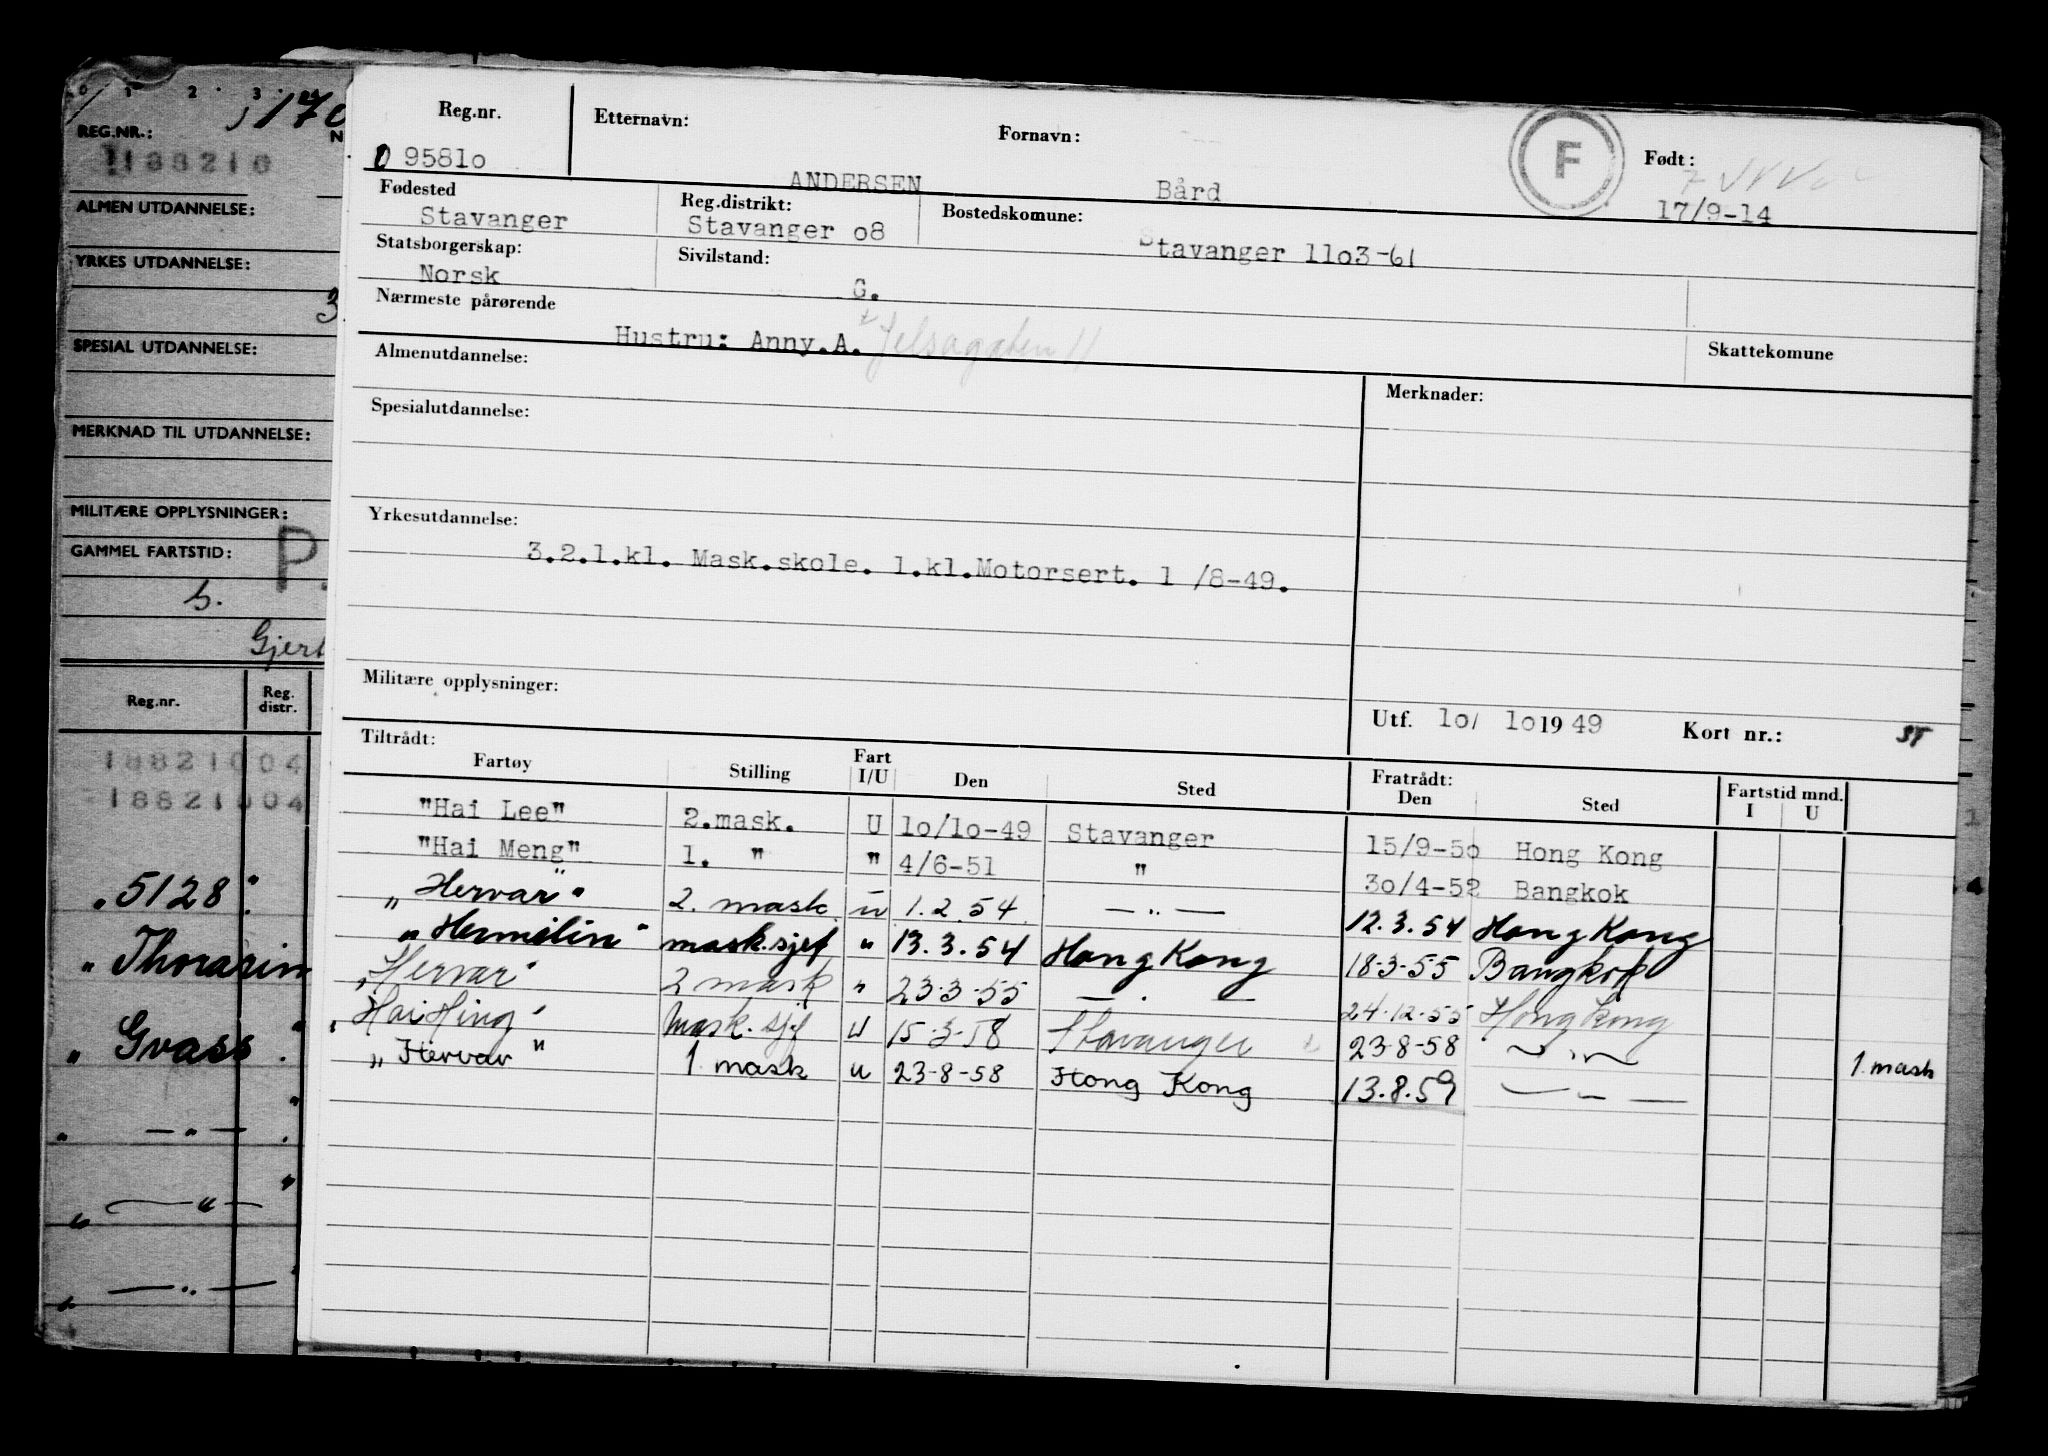 Reg.nr. Etternavn: Fornavn: F Født:
0 95810 ANDERSEN Bård 17/9-14
Fødested Reg.distrikt: Bostedskomune:
Stavanger Stavanger o8 Stavanger 11o3-61
Statsborgerskap: Sivilstand:
Norsk G.
Nærmeste pårørende
Hustru: Anny.A. Jelsagaten 11
Almenutdannelse: Skattekomune
Merknader:
Spesialutdannelse:
Yrkesutdannelse:
3.2.1.kl. Mask.skole. 1.kl.Motorsert. 1 /8-49.
Militære opplysninger:
Utf. 1o/ 1o19 49 Kort nr.:
Tiltrådt: Fratrådt:
Fartøy Stilling Fart I/U Den Sted Den Sted Fartstid mnd. I U
"Hai Lee" 2.mask. U 1o/1o-49 Stavanger 15/9-5o Hong Kong
"Hai Meng" 1. " " 4/6-51 " 3o/4-52 Bangkok
"Hervar" 2. mask u 1.2.54 — " — 12.3.54 Hong Kong
"Hermelin" mask.sjef " 13.3.54 Hong Kong 18-3-55 Bangkok
"Hervar" 2 mask " 23-3-55 — " — 24-12-55 Hong Kong
"Hai Hing" Mask. sjef U 15-3-58 Stavanger 23-8-58 — " —
"Hervar" 1 mask u 23-8-58 Hong Kong 13.8.59 — " — 1. mask
0 1 2 3
REG.NR.:
1188210
ALMEN UTDANNELSE:
YRKES UTDANNELSE:
3.
SPESIAL UTDANNELSE:
MERKNAD TIL UTDANNELSE:
MILITÆRE OPPLYSNINGER:
GAMMEL FARTSTID: P.
Reg.nr. Reg. distr.
18821004
18821004
"5128"
"Thorasin
"Gvass"
" — " — "
" — " — "
" — " — "